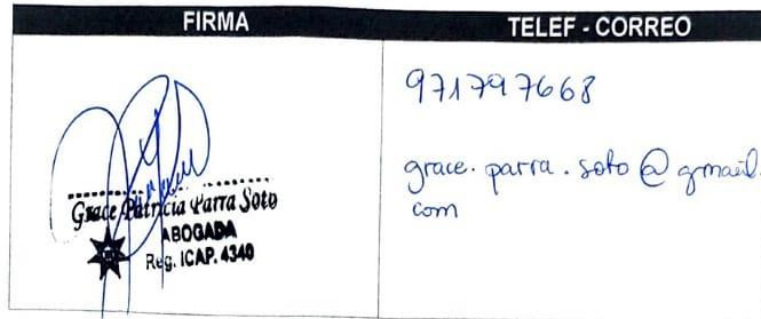 FIRMA
TELEF - CORREO
Grace Patricia Parra Soto
ABOGADA
Reg. ICAP. 4340
971797668
grace.parra.soto@gmail.
com